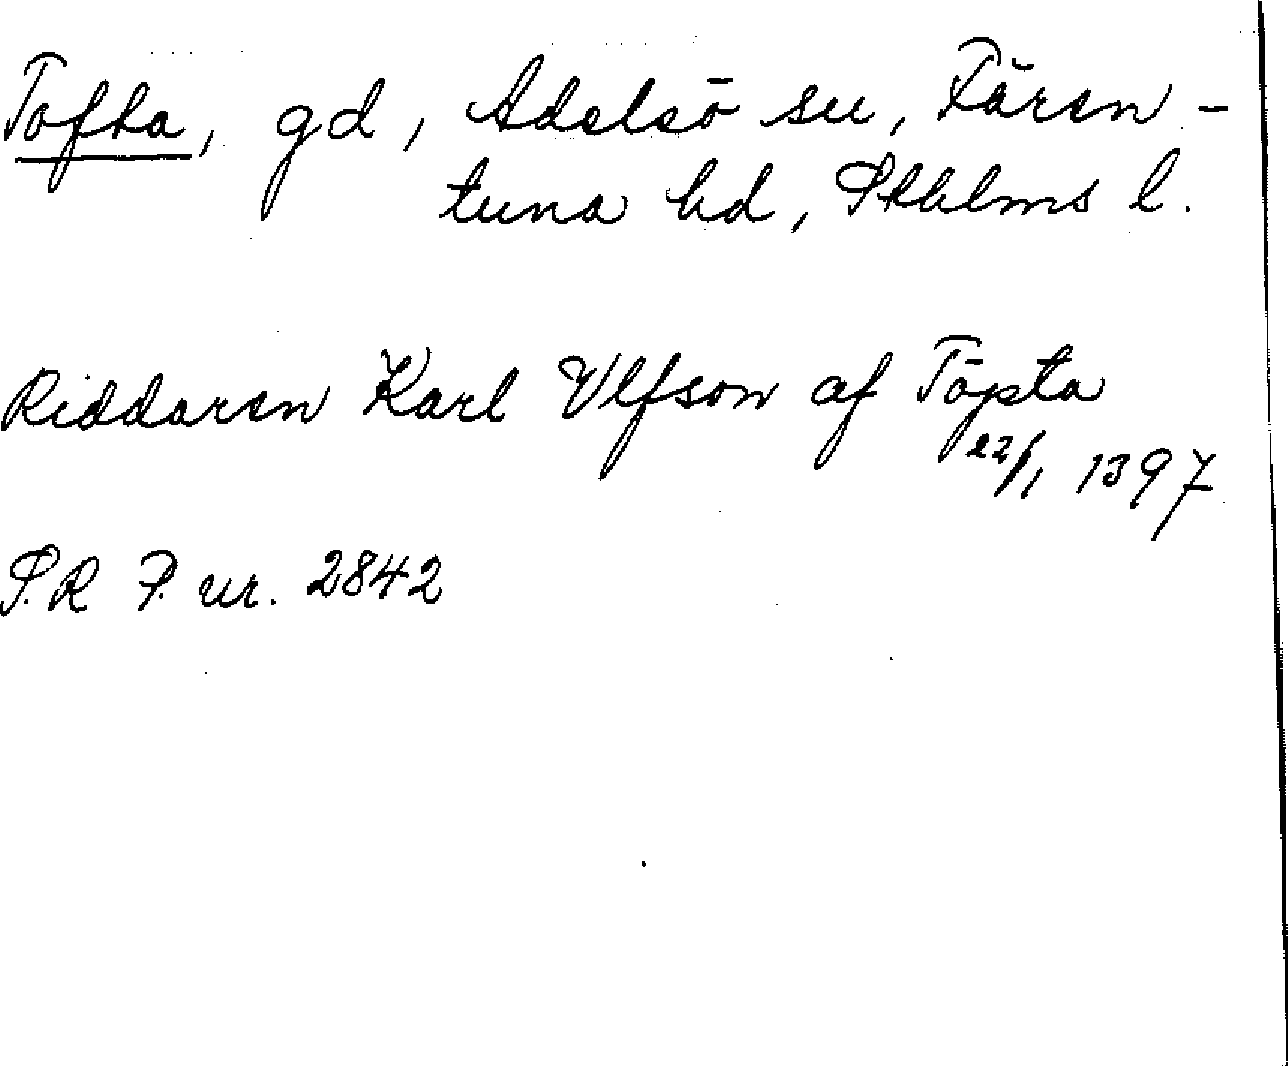 Tofta, gd, Adelsö sn, Fären-
tuna hd, Sthlms l.
Riddaren Karl Ulfson af Töpta
22/1 1397
S.R P. nr. 2842